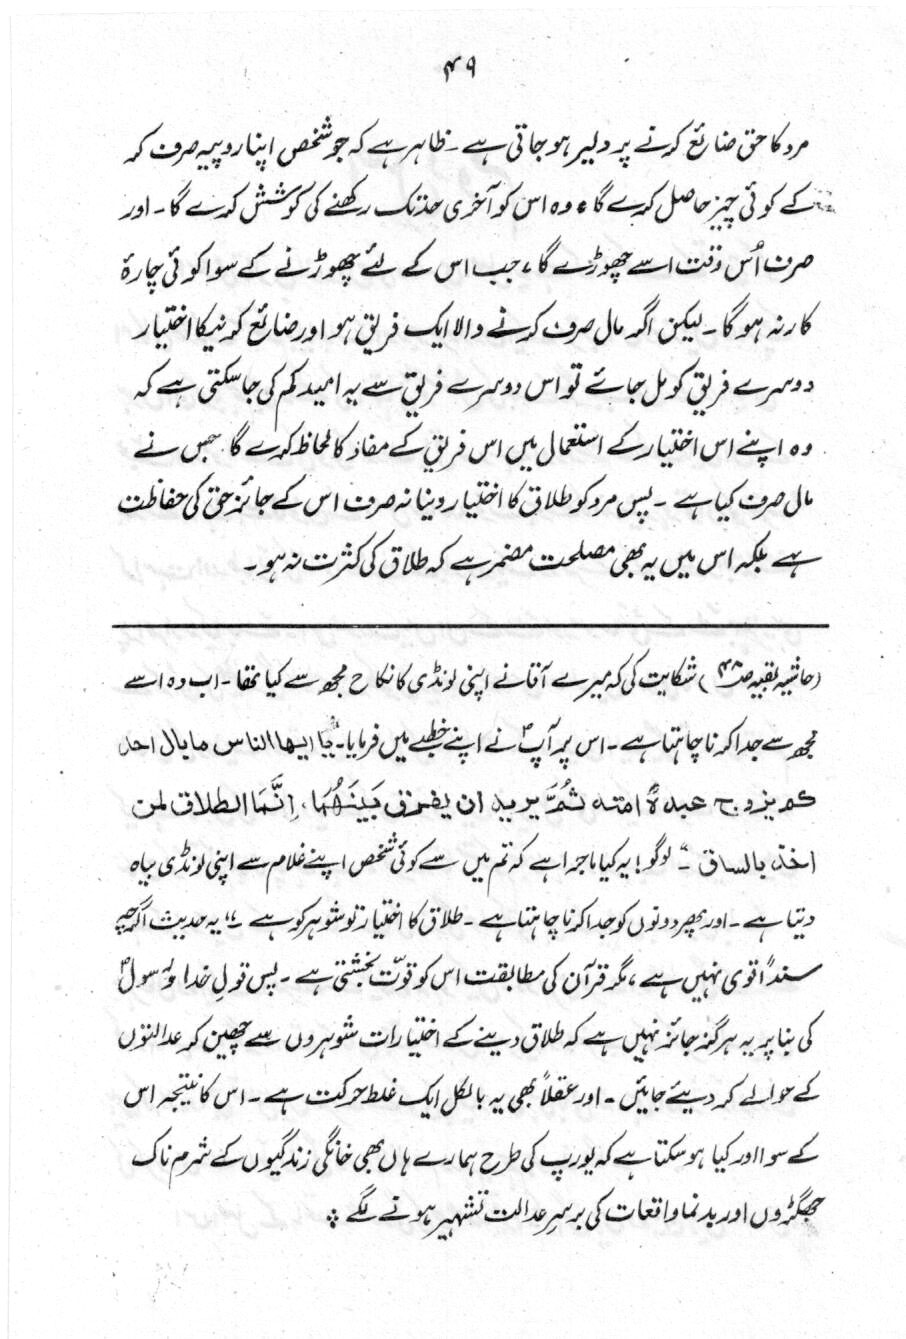 ۴۹
مرد کا حق ضائع کرنے پر دلیر ہو جاتی ہے۔ ظاہر ہے کہ جو شخص اپنا روپیہ صرف کر
کے کوئی چیز حاصل کرے گا، وہ اس کو آخری حد تک رکھنے کی کوشش کرے گا۔ اور
صرف اُس وقت اسے چھوڑے گا، جب اس کے لئے چھوڑنے کے سوا کوئی چارۂ
کار نہ ہو گا۔ لیکن اگر مال صرف کرنے والا ایک فریق ہو اور ضائع کرنیکا اختیار
دوسرے فریق کو مل جائے تو اس دوسرے فریق سے یہ امید کم کی جا سکتی ہے کہ
وہ اپنے اس اختیار کے استعمال میں اس فریق کے مفاد کا لحاظ کرے گا جس نے
مال صرف کیا ہے۔ پس مرد کو طلاق کا اختیار دینا نہ صرف اس کے جائز حق کی حفاظت
ہے بلکہ اس میں یہ بھی مصلحت مضمر ہے کہ طلاق کی کثرت نہ ہو۔
(حاشیہ بقیہ ص۴۸) شکایت کی کہ میرے آقا نے اپنی لونڈی کا نکاح مجھ سے کیا تھا۔ اب وہ اسے
مجھ سے جدا کرنا چاہتا ہے۔ اس پر آپؐ نے اپنے خطبے میں فرمایا۔ "یا ایھا الناس ما بال احد
کم یزوج عبدہٗ امتہ ثُمَّ یرید ان یفرق بَینَھُمَا، اِنَّمَا الطلاق لمن
اخذ بالساق"۔ لوگو! یہ کیا ماجرا ہے کہ تم میں سے کوئی شخص اپنے غلام سے اپنی لونڈی بیاہ
دیتا ہے۔ اور پھر دونوں کو جدا کرنا چاہتا ہے۔ طلاق کا اختیار تو شوہر کو ہے۔" یہ حدیث اگرچہ
سنداً قوی نہیں ہے، مگر قرآن کی مطابقت اس کو قوّت بخشتی ہے۔ پس قولِ خدا و رسولؐ
کی بنا پر یہ ہرگز جائز نہیں ہے کہ طلاق دینے کے اختیارات شوہروں سے چھین کر عدالتوں
کے حوالے کر دیئے جائیں۔ اور عقلاً بھی یہ بالکل ایک غلط حرکت ہے۔ اس کا نتیجہ اس
کے سوا اور کیا ہو سکتا ہے کہ یورپ کی طرح ہمارے ہاں بھی خانگی زندگیوں کے شرم ناک
جھگڑوں اور بدنما واقعات کی برسرِ عدالت تشہیر ہونے لگے